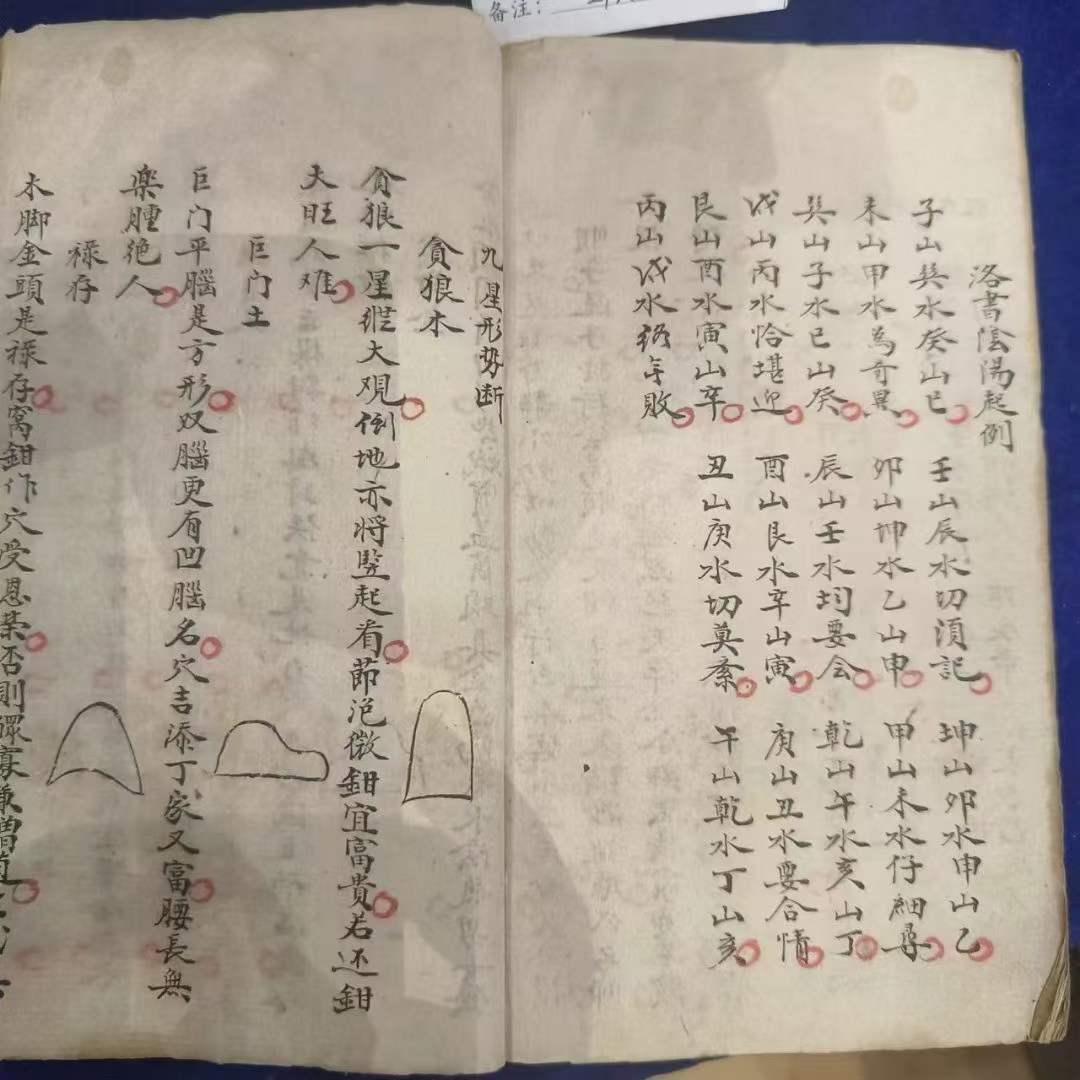 备注：
洛書陰陽起例
子山巽水癸山巳 壬山辰水切須記 坤山卯水申山乙
未山甲水為奇異 卯山坤水乙山申 甲山未水仔細尋
巽山子水巳山癸 辰山壬水均要会 乾山午水亥山丁
戌山丙水恰堪迎 酉山艮水辛山寅 庚山丑水要合情
艮山酉水寅山辛 丑山庚水切莫紊 午山乾水丁山亥
丙山戌水終年敗
九星形势断
貪狼木
貪狼一星縱大观倒地亦将竪起看節泡微鉗宜富貴若还鉗
夫旺人难
巨门土
巨门平腦是方形双腦更有凹腦名穴吉添丁家又富腰長無
樂腫绝人
禄存
木脚金頭是禄存窝鉗作穴受恩荣否則鳏寡兼僧道